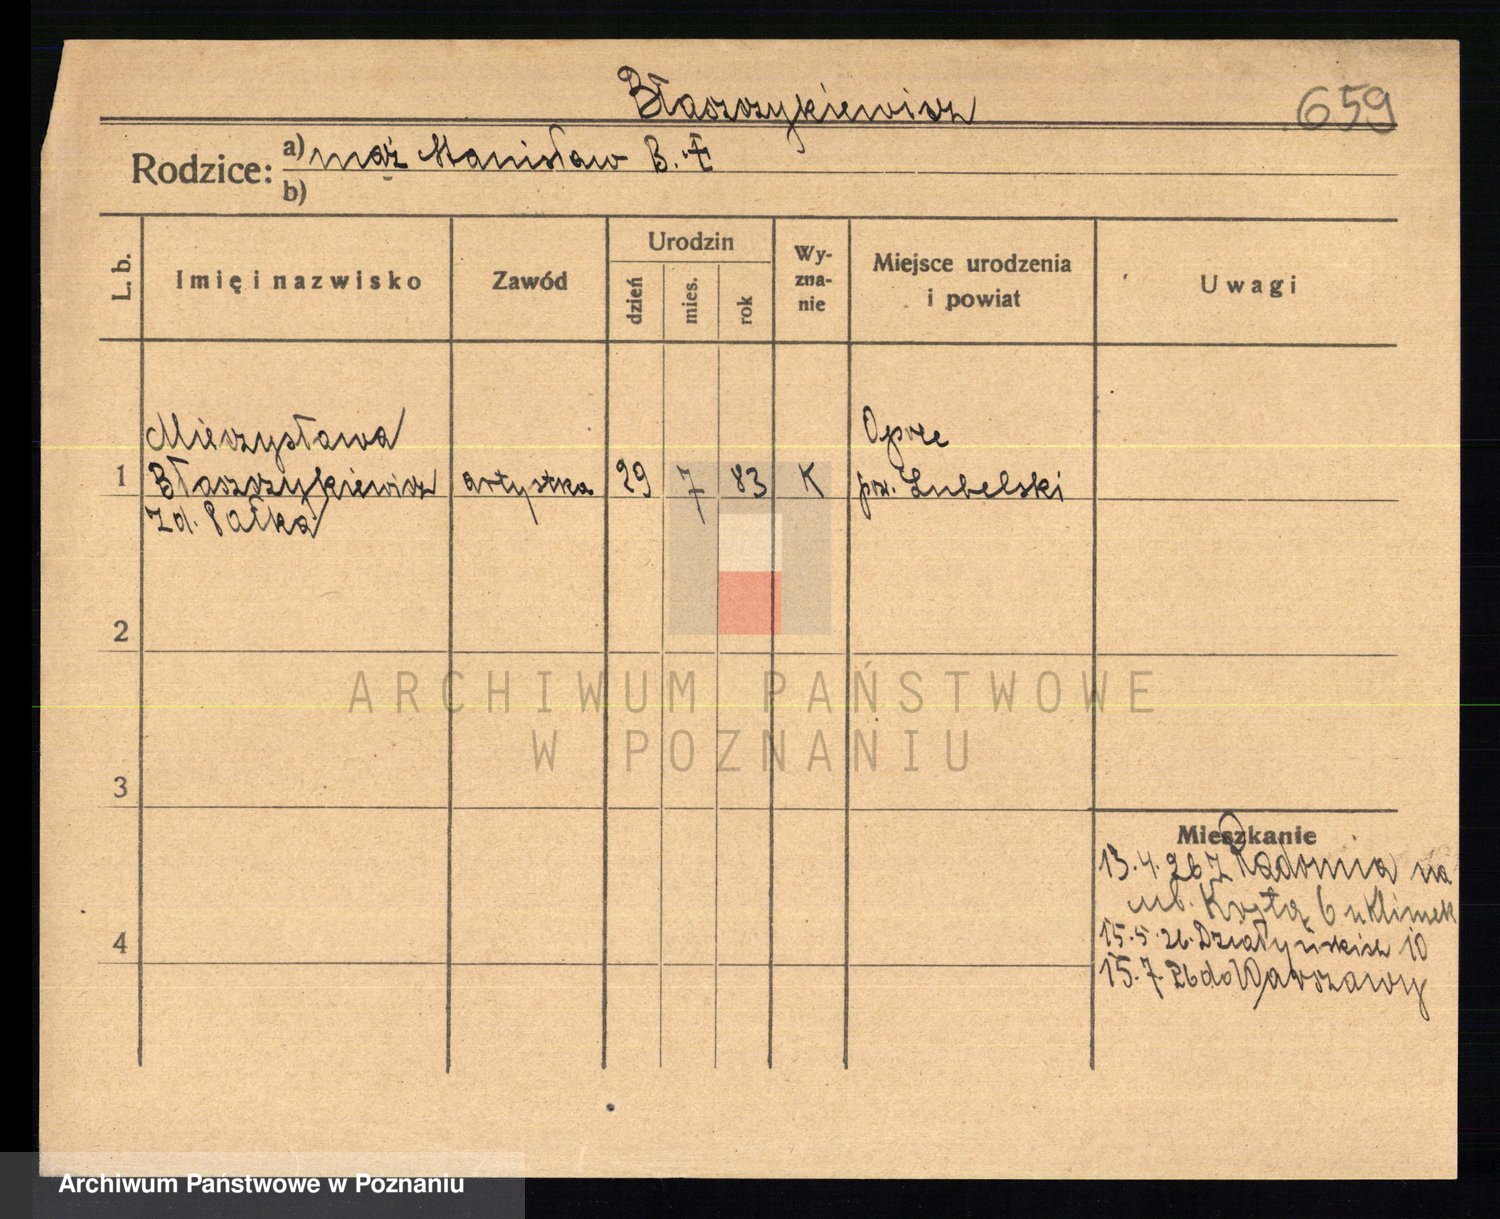 Błaszczykiewicz
659
Rodzice:
a) mąż Stanisław B. †
b)
L. b.
Imię i nazwisko
Zawód
Urodzin
dzień
mies.
rok
Wy-
zna-
nie
Miejsce urodzenia
i powiat
Uwagi
1
Mieczysława
Błaszczykiewicz
zd. Pałka
artystka
29
7
83
K
Opole
pow. Lubelski
2
ARCHIWUM PAŃSTWOWE
W POZNANIU
3
Mieszkanie
13.4.26 z Radomia na
ul. Kręta 6 u Klimek
4
15.5.26. Działyńskich 10
15.7.26 do Warszawy
Archiwum Państwowe w Poznaniu